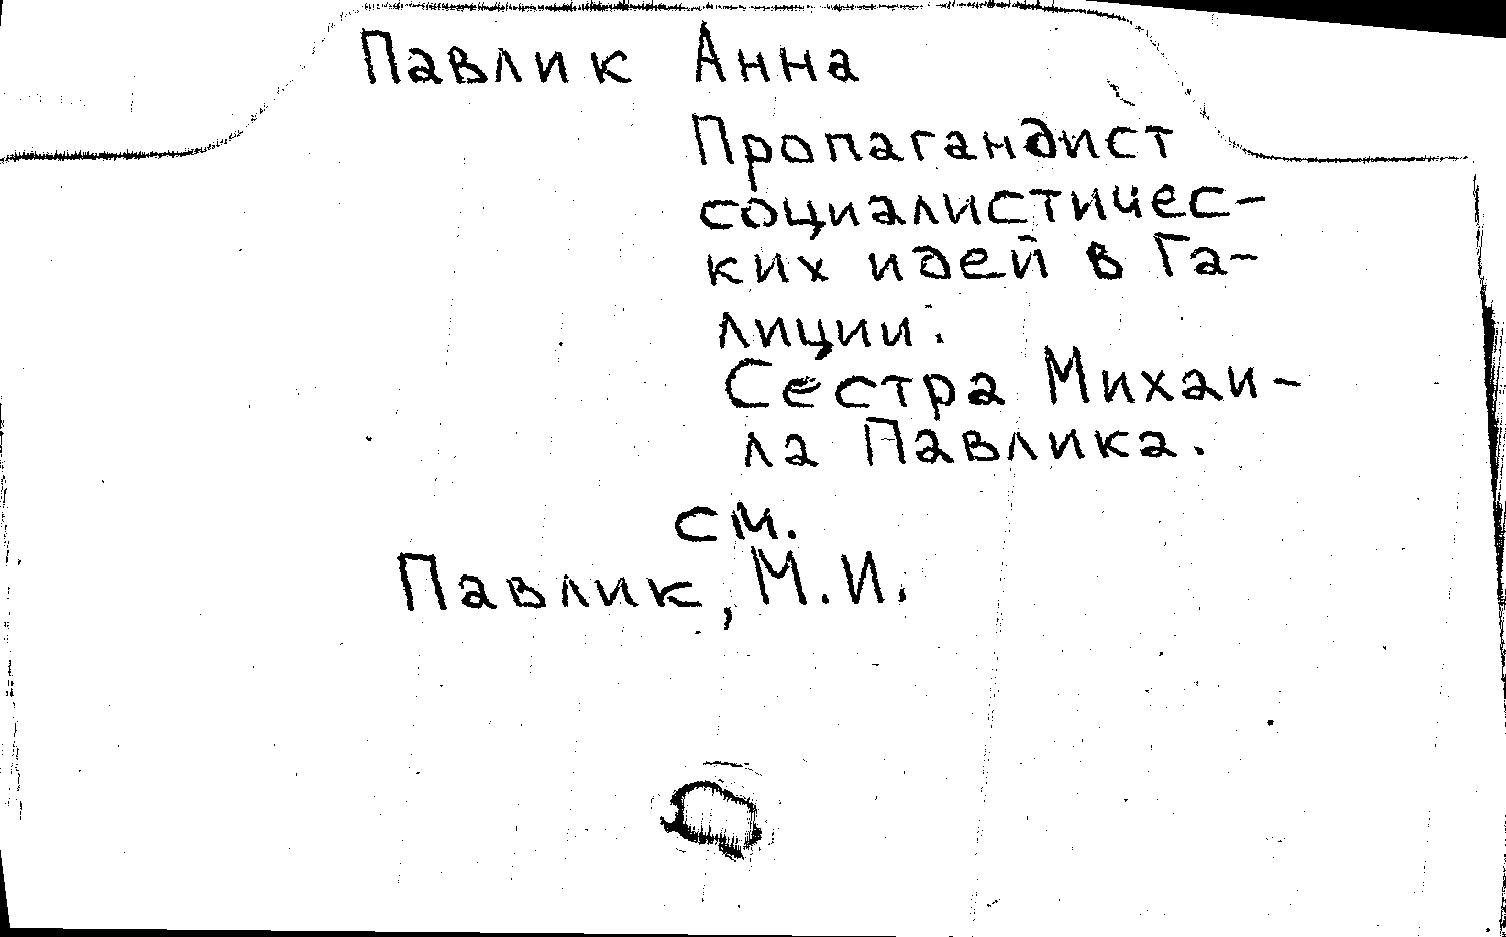 Павлик Анна
Пропагандист
социалистичес-
ких идей в Га-
лиции.
Сестра Михаи-
ла Павлика.
см.
Павлик, М.И.